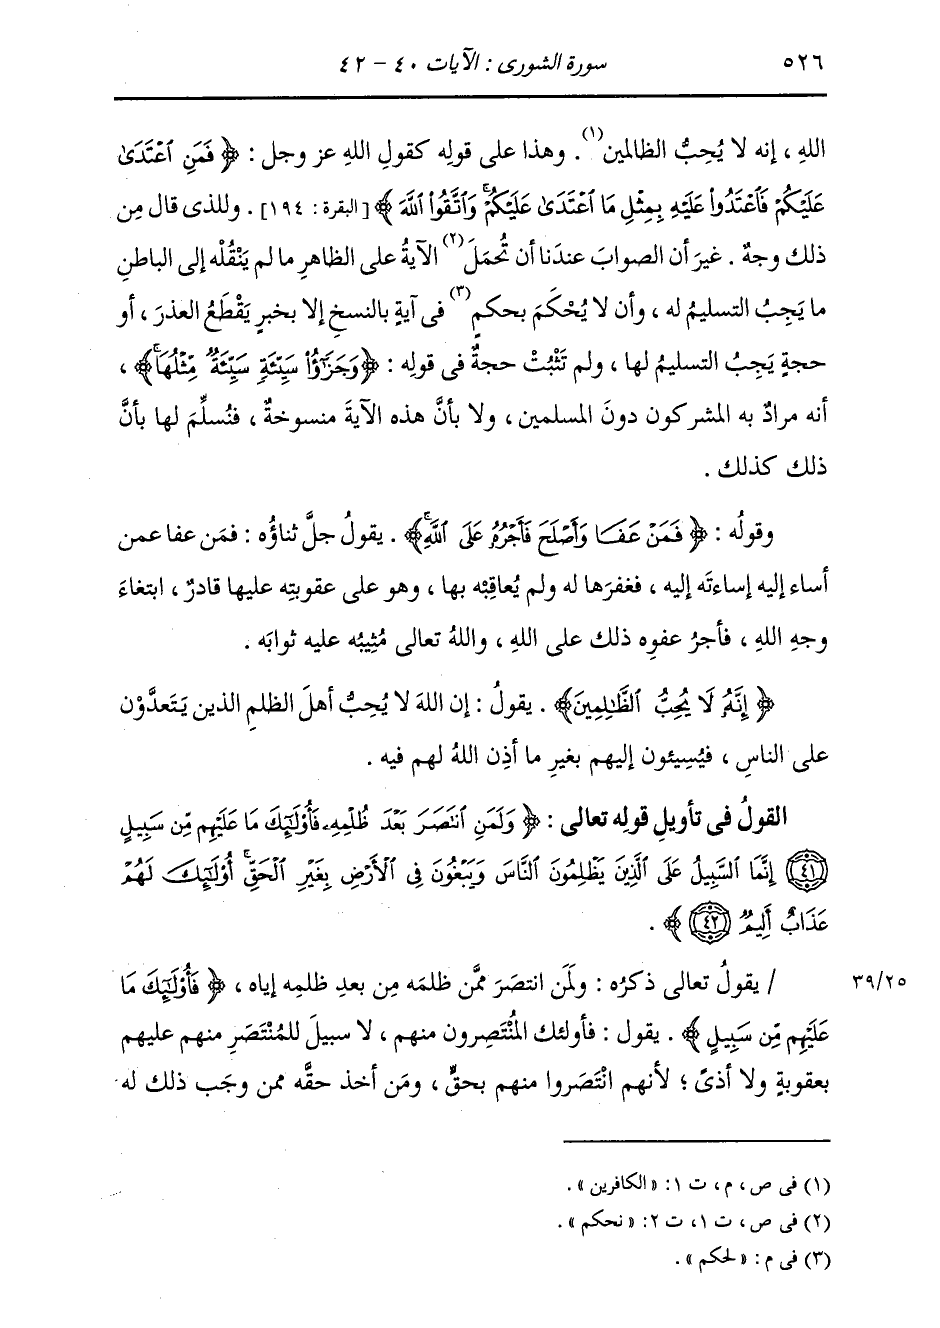 ٥٢٦ سورة الشورى : الآيات ٤٠ - ٤٢
اللهِ ، إنه لا يُحِبُّ الظالمين(١) . وهذا على قولِه كقولِ اللهِ عز وجل : ﴿ فَمَنِ ٱعْتَدَىٰ
عَلَيْكُمْ فَٱعْتَدُوا۟ عَلَيْهِ بِمِثْلِ مَا ٱعْتَدَىٰ عَلَيْكُمْ ۚ وَٱتَّقُوا۟ ٱللَّهَ ﴾ [البقرة : ١٩٤] . وللذى قال مِن
ذلك وجهٌ . غيرَ أن الصوابَ عندَنا أن تُحمَلَ(٢) الآيةُ على الظاهرِ ما لم يَنْقُلْه إلى الباطنِ
ما يَجِبُ التسليمُ له ، وأن لا يُحْكَمَ بحكمٍ(٣) فى آيةٍ بالنسخِ إلا بخبرٍ يَقْطَعُ العذرَ ، أو
حجةٍ يَجِبُ التسليمُ لها ، ولم تَثْبُتْ حجةٌ فى قولِه : ﴿وَجَزَٰٓؤُا۟ سَيِّئَةٍ سَيِّئَةٌ مِّثْلُهَا ۖ﴾ ،
أنه مرادٌ به المشركون دونَ المسلمين ، ولا بأنَّ هذه الآيةَ منسوخةٌ ، فنُسلِّمَ لها بأنَّ
ذلك كذلك .
وقولُه : ﴿ فَمَنْ عَفَا وَأَصْلَحَ فَأَجْرُهُۥ عَلَى ٱللَّهِ ۚ﴾ . يقولُ جلَّ ثناؤُه : فمَن عفا عمن
أساء إليه إساءتَه إليه ، فغفرَها له ولم يُعاقِبْه بها ، وهو على عقوبتِه عليها قادرٌ ، ابتغاءَ
وجهِ اللهِ ، فأجرُ عفوِه ذلك على اللهِ ، واللهُ تعالى مُثِيبُه عليه ثوابَه .
﴿ إِنَّهُۥ لَا يُحِبُّ ٱلظَّٰلِمِينَ﴾ . يقولُ : إن اللهَ لا يُحِبُّ أهلَ الظلمِ الذين يَتَعدَّوْن
على الناسِ ، فيُسِيئون إليهم بغيرِ ما أذِن اللهُ لهم فيه .
القولُ فى تأويلِ قولِه تعالى : ﴿ وَلَمَنِ ٱنتَصَرَ بَعْدَ ظُلْمِهِۦ فَأُو۟لَٰٓئِكَ مَا عَلَيْهِم مِّن سَبِيلٍ
(٤١) إِنَّمَا ٱلسَّبِيلُ عَلَى ٱلَّذِينَ يَظْلِمُونَ ٱلنَّاسَ وَيَبْغُونَ فِى ٱلْأَرْضِ بِغَيْرِ ٱلْحَقِّ ۚ أُو۟لَٰٓئِكَ لَهُمْ
عَذَابٌ أَلِيمٌ (٤٢) ﴾ .
/ يقولُ تعالى ذكرُه : ولَمَن انتصَرَ ممَّن ظلمَه مِن بعدِ ظلمِه إياه ، ﴿ فَأُو۟لَٰٓئِكَ مَا ٣٩/٢٥
عَلَيْهِم مِّن سَبِيلٍ ﴾ . يقول : فأولئك المُنْتصِرون منهم ، لا سبيلَ للمُنْتَصَرِ منهم عليهم
بعقوبةٍ ولا أذىً ؛ لأنهم انْتَصَروا منهم بحقٍّ ، ومَن أخذ حقَّه ممن وجَب ذلك له
(١) فى ص ، م ، ت ١ : « الكافرين » .
(٢) فى ص ، ت ١ ، ت ٢ : « نحكم » .
(٣) فى م : « لحكم » .